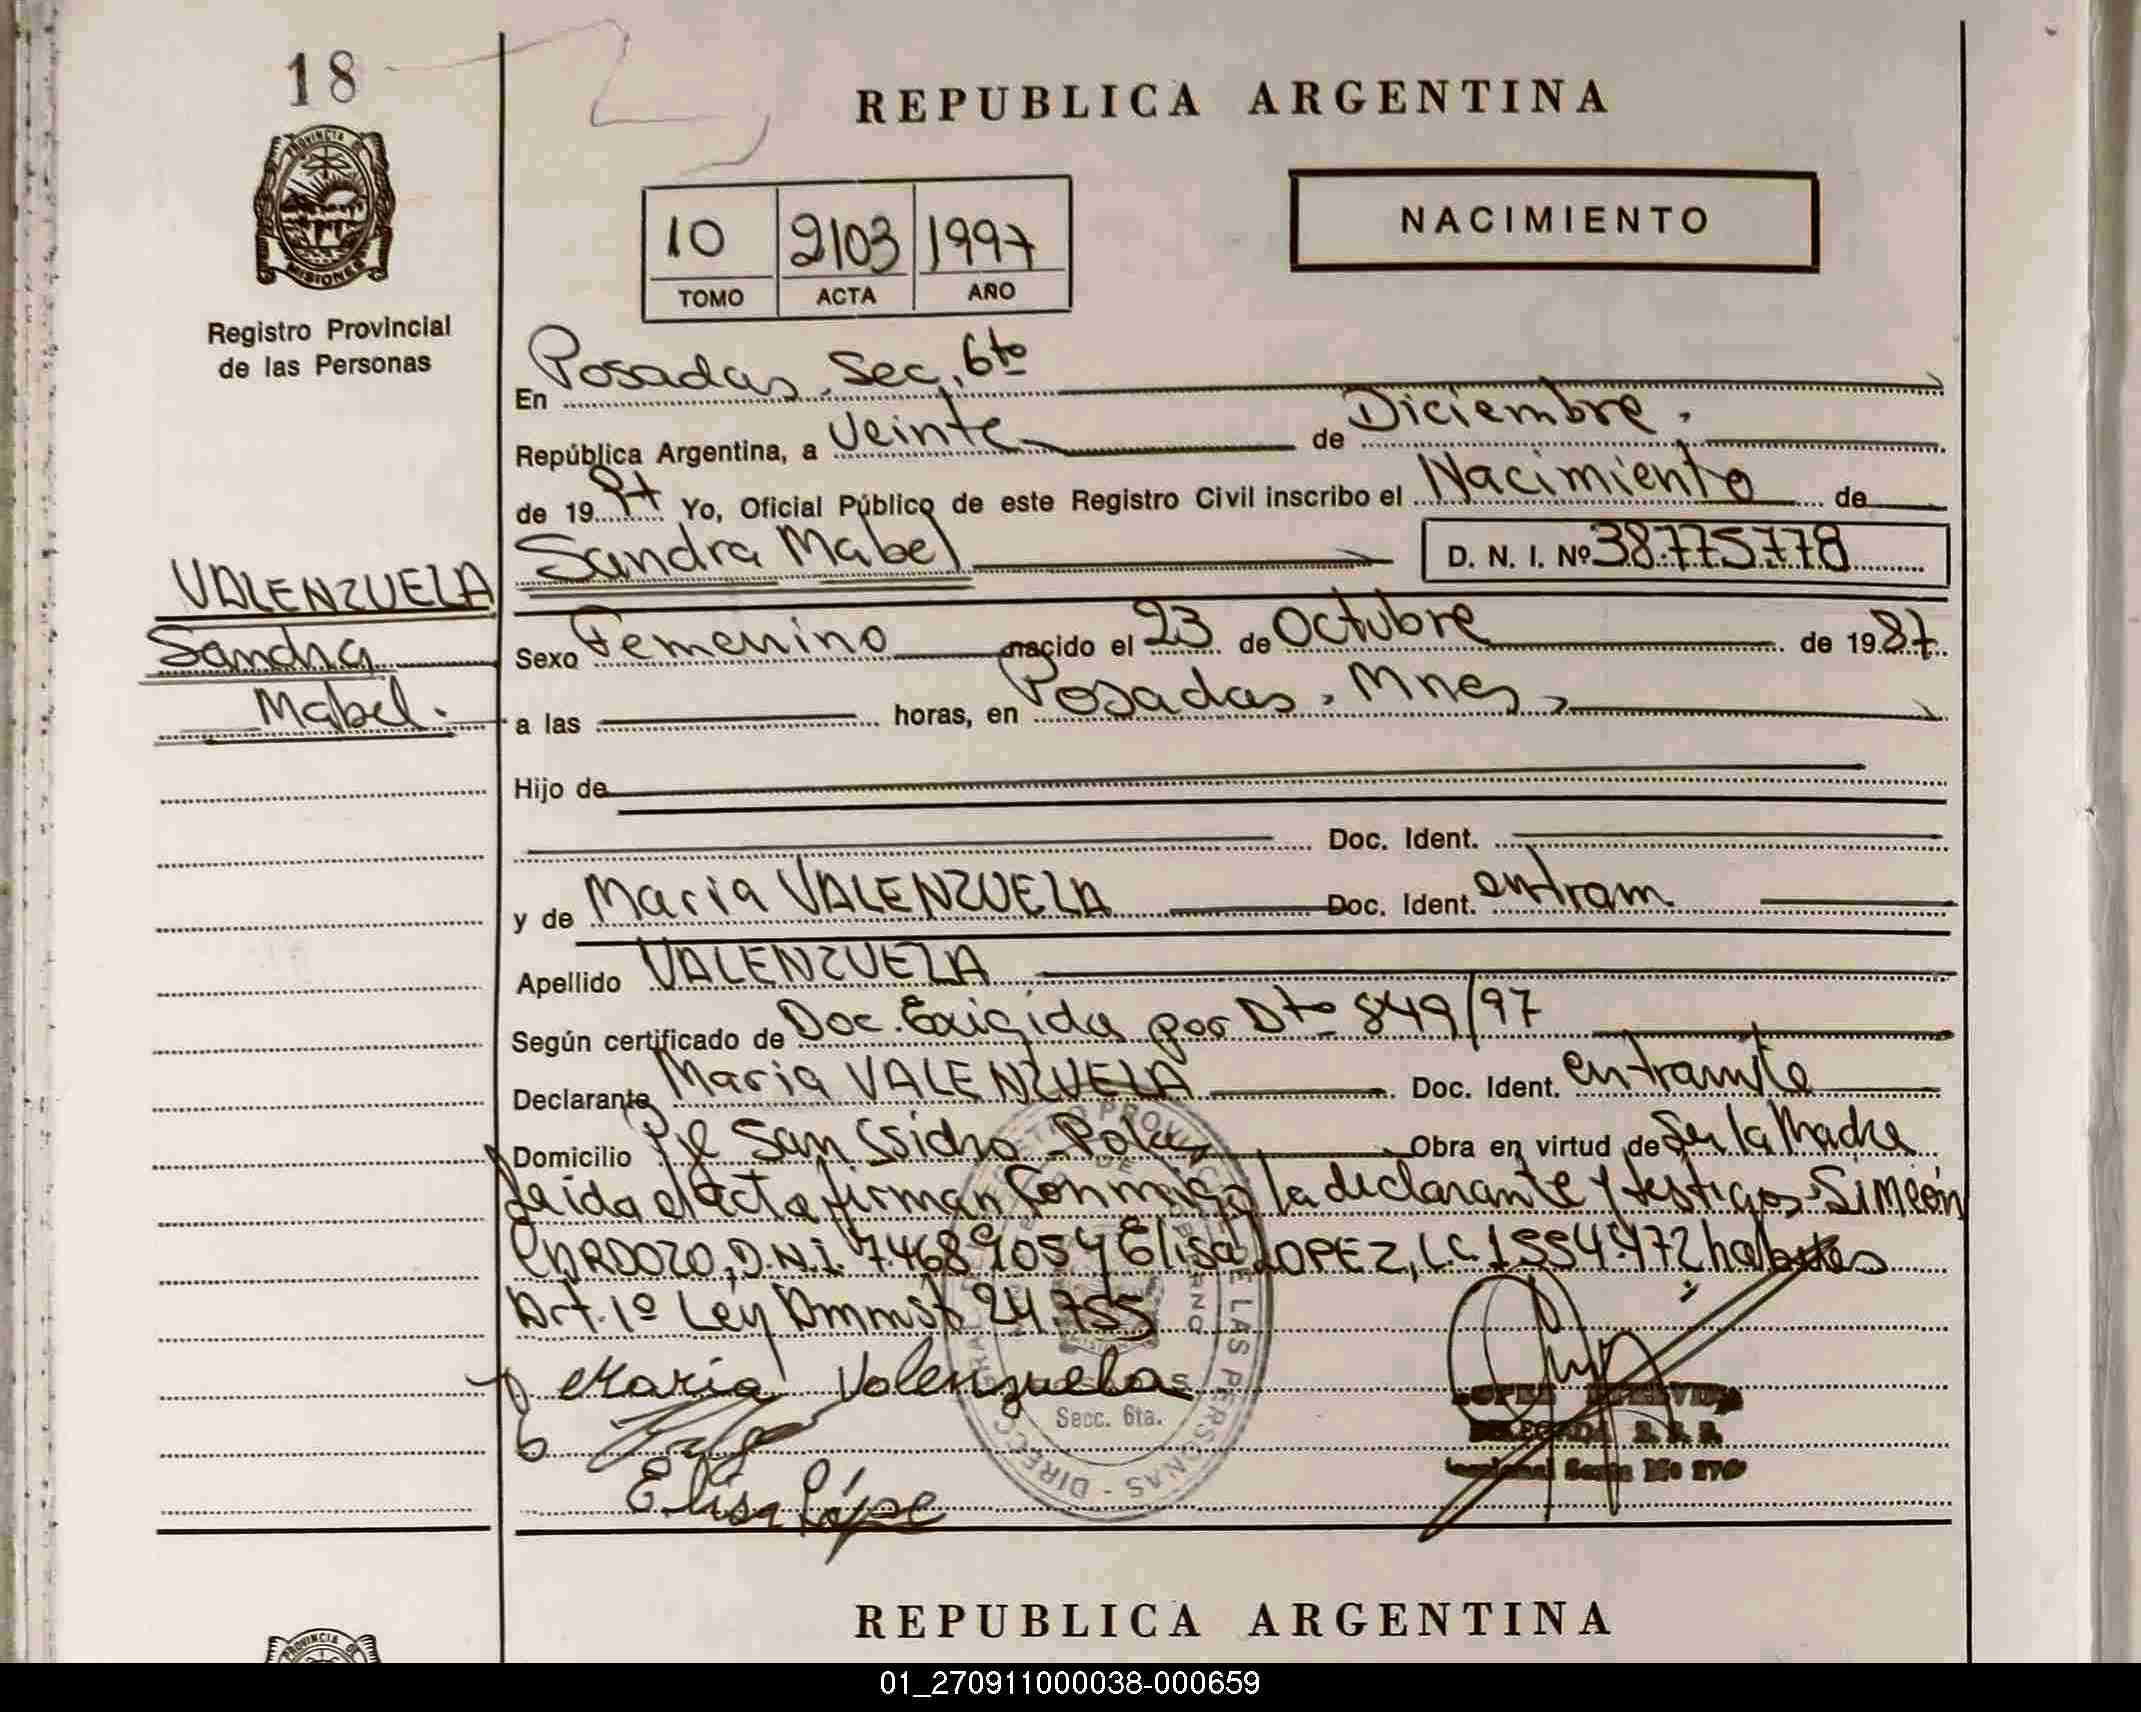 18
REPUBLICA ARGENTINA
PROVINCIA DE
MISIONES
Registro Provincial
de las Personas
NACIMIENTO
10 2103 1997
TOMO ACTA AÑO
En Posadas, Sec, 6to
República Argentina, a Veinte de Diciembre.
de 1997 Yo, Oficial Público de este Registro Civil inscribo el Nacimiento de
VALENZUELA Sandra Mabel D. N. I. Nº 38.775.778
Sandra
Mabel.
Sexo Femenino nacido el 23 de Octubre de 1987
a las horas, en Posadas, Mnes,
Hijo de
Doc. Ident.
y de Maria VALENZUELA Doc. Ident. entram
Apellido VALENZUELA
Según certificado de Doc. Exigida por Dto 849/97
Declarante Maria VALENZUELA Doc. Ident. entramite
Domicilio San Isidro Obra en virtud de Ser la Madre
Leida el acta firman Conmigo la declarante y testigos Simeón
CARDOZO, D.N.I. 7.468.905 y Elisa LOPEZ, L.C. 1554.472 habites
Art. 1º Ley Ammst 24.755
Maria Valenzuela
Secc. 6ta.
Elisa Lópe
REPUBLICA ARGENTINA
PROVINCIA DE
01_270911000038-000659